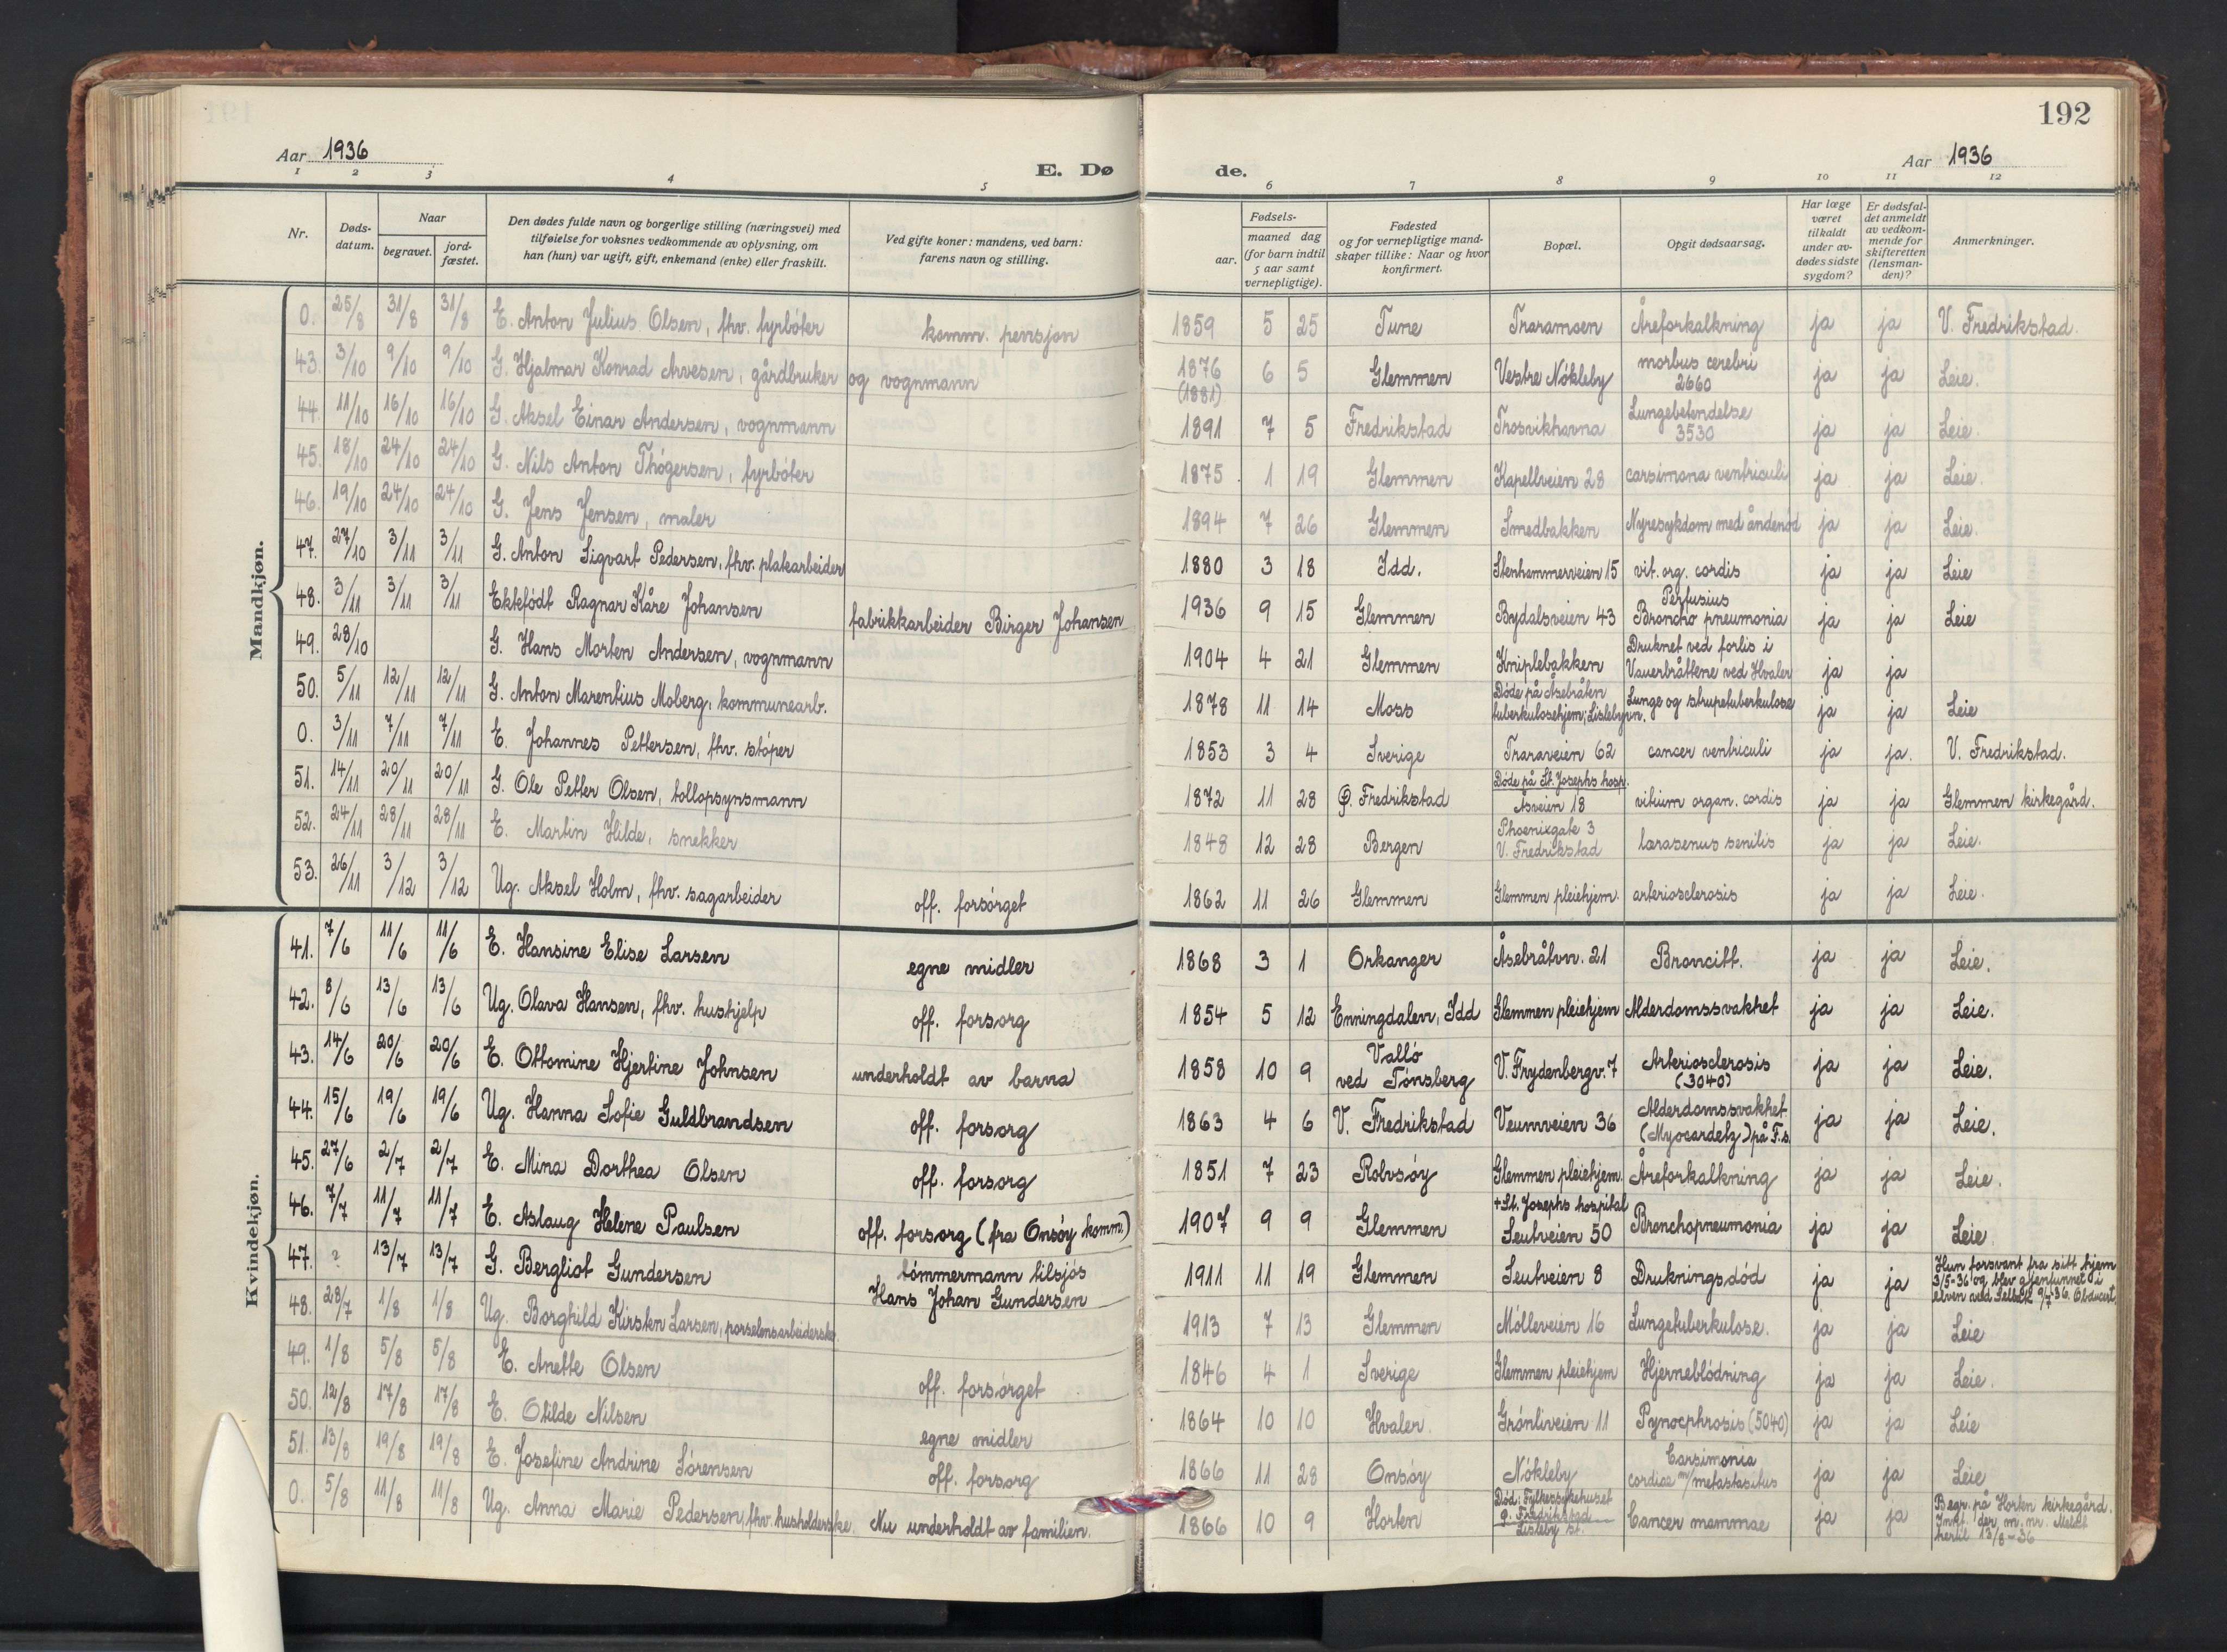 192
Aar 1936
E. Dø
de.
Aar 1936
1 2 3 4 5 6 7 8 9 10 11 12
Nr.
Døds-
datum.
Naar
begravet.
jord-
fæstet.
Den dødes fulde navn og borgerlige stilling (næringsvei) med
tilføielse for voksnes vedkommende av oplysning, om
han (hun) var ugift, gift, enkemand (enke) eller fraskilt.
Ved gifte koner: mandens, ved barn:
farens navn og stilling.
Fødsels-
aar.
maaned dag
(for barn indtil
5 aar samt
vernepligtige).
Fødested
og for vernepligtige mand-
skaper tillike: Naar og hvor
konfirmert.
Bopæl.
Opgit dødsaarsag.
Har læge
været
tilkaldt
under av-
dødes sidste
sygdom?
Er dødsfal-
det anmeldt
av vedkom-
mende for
skifteretten
(lensman-
den)?
Anmerkninger.
Mandkjøn.
0. 25/8 31/8 31/8 E. Anton Julius Olsen, fhv. fyrbøter komm. pensjon 1859 5 25 Tune Traramoen Åreforkalkning ja ja V. Fredrikstad.
43. 3/10 9/10 9/10 G. Hjalmar Konrad Arvesen, gårdbruker og vognmann 1876 (1881) 6 5 Glemmen Vestre Nøkleby morbus cerebri 2660 ja ja Leie.
44. 11/10 16/10 16/10 G. Aksel Einar Andersen, vognmann 1891 7 5 Fredrikstad Trosvikhavna Lungebetendelse 3530 ja ja Leie.
45. 18/10 24/10 24/10 G. Nils Anton Thøgersen, fyrbøter 1875 1 19 Glemmen Kapellveien 28 carsimona ventriculi ja ja Leie.
46. 19/10 24/10 24/10 G. Jens Jensen, maler 1894 7 26 Glemmen Smedbakken Nyresykdom med åndenød ja ja Leie.
47. 27/10 3/11 3/11 G. Anton Sigvart Pedersen, fhv. platearbeider 1880 3 18 Idd. Stenhammerveien 15 vit. org. cordis ja ja Leie
48. 3/11 3/11 3/11 Ektefødt Ragnar Kåre Johansen fabrikkarbeider Birger Johansen 1936 9 15 Glemmen Bydalsveien 43 Pertusius Broncho pneumonia ja ja Leie
49. 28/10 G. Hans Morten Andersen, vognmann 1904 4 21 Glemmen Kniplebakken Druknet ved forlis i Vauerbråttene ved Hvaler ja ja
50. 5/11 12/11 12/11 G. Anton Marentius Moberg, kommunearb. 1878 11 14 Moss Døde på Åsebråten tuberkulosehjem; Lislebyvn. Lunge og strupetuberkulose ja ja Leie
0. 3/11 7/11 7/11 E. Johannes Pettersen, fhv. støper 1853 3 4 Sverige Traraveien 62 cancer ventriculi ja ja. V. Fredrikstad.
51. 14/11 20/11 20/11 G. Ole Petter Olsen, tollopsynsmann 1872 11 28 Ø. Fredrikstad Døde på St. Josephs hosp. Åsveien 18 vitium organ. cordis ja ja Glemmen kirkegård.
52. 24/11 28/11 28/11 E. Martin Hilde, snekker 1848 12 28 Bergen Phoenixgate 3 V. Fredrikstad senilis ja ja Leie.
53. 26/11 3/12 3/12 Ug. Aksel Holm, fhv. sagarbeider off. forsørget 1862 11 26 Glemmen Glemmen pleiehjem. arteriosclerosis ja ja Leie.
Kvindekjøn.
41. 7/6 11/6 11/6 E. Hansine Elise Larsen egne midler 1868 3 1 Orkanger Åsebråtvn. 21 Broncitt. ja ja Leie.
42. 8/6 13/6 13/6 Ug. Olava Hansen, fhv. hushjelp off. forsorg 1854 5 12 Enningdalen, Idd Glemmen pleiehjem Alderdomssvakhet ja ja Leie.
43. 14/6 20/6 20/6 E. Ottomine Hjertine Johnsen underholdt av barna 1858 10 9 Valló ved Tønsberg V. Frydenbergv. 7 Arteriosclerosis (3040) ja ja Leie.
44. 15/6 19/6 19/6 Ug. Hanna Sofie Guldbrandsen off. forsorg 1863 4 6 V. Fredrikstad Veumveien 36 Alderdomssvakhet (Myocardetz) på F.s. ja ja Leie.
45. 27/6 2/7 2/7 E. Mina Dorthea Olsen off. forsorg 1851 7 23 Rolvsøy Glemmen pleiehjem. Åreforkalkning ja ja Leie.
46. 7/7 11/7 11/7 E. Aslaug Helene Paulsen off. forsorg (fra Onsøy komm.) 1907 9 9 Glemmen +St. Josephs hospital Seutveien 50 Bronchopneumonia ja ja Leie
47. ? 13/7 13/7 G. Bergliot Gundersen tømmermann tilsjøs Hans Johan Gundersen 1911 11 19 Glemmen Seutveien 8 Drukningsdød ja ja Hun forsvant fra sitt hjem 3/5-36 og blev gjenfunnet i elven ved Selbak 9/7-36. Obducert.
48. 28/7 1/8 1/8 Ug. Borghild Kirsten Larsen, porselensarbeiderske. 1913 7 13 Glemmen Mølleveien 16 Lungetuberkulose. ja ja Leie
49. 1/8 5/8 5/8 E. Anette Olsen off. forsørget 1846 4 1 Sverige Glemmen pleiehjem Hjerneblødning ja ja Leie.
50. 12/8 17/8 17/8 E. Otilde Nilsen egne midler 1864 10 10 Hvaler. Grønliveien 11 Pynocphrosis (5040) ja ja Leie
51. 13/8 19/8 19/8 E. Josefine Andrine Sørensen off. forsorg 1866 11 28 Onsøy Nøkleby Carsimonia cordiae m/ metastasitus ja ja Leie
0. 5/8 11/8 11/8 Ug. Anna Marie Pedersen, fhv. husholderske. Nu underholdt av familien. 1866 10 9 Horten Død: Fylkessykehuset Ø. Fredrikstad Lisleby st. Cancer mammae ja ja Begr. på Horten kirkegård. Innt. der m. nr. Meldt hertil 13/8-36